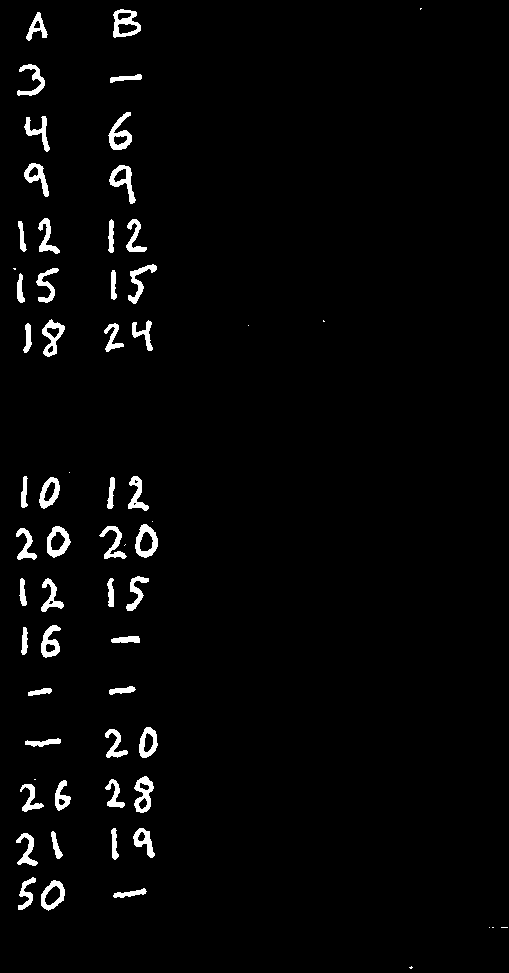 A B
3 —
4 6
9 9
12 12
15 15
18 24
10 12
20 20
12 15
16 —
— —
— 20
26 28
21 19
50 —